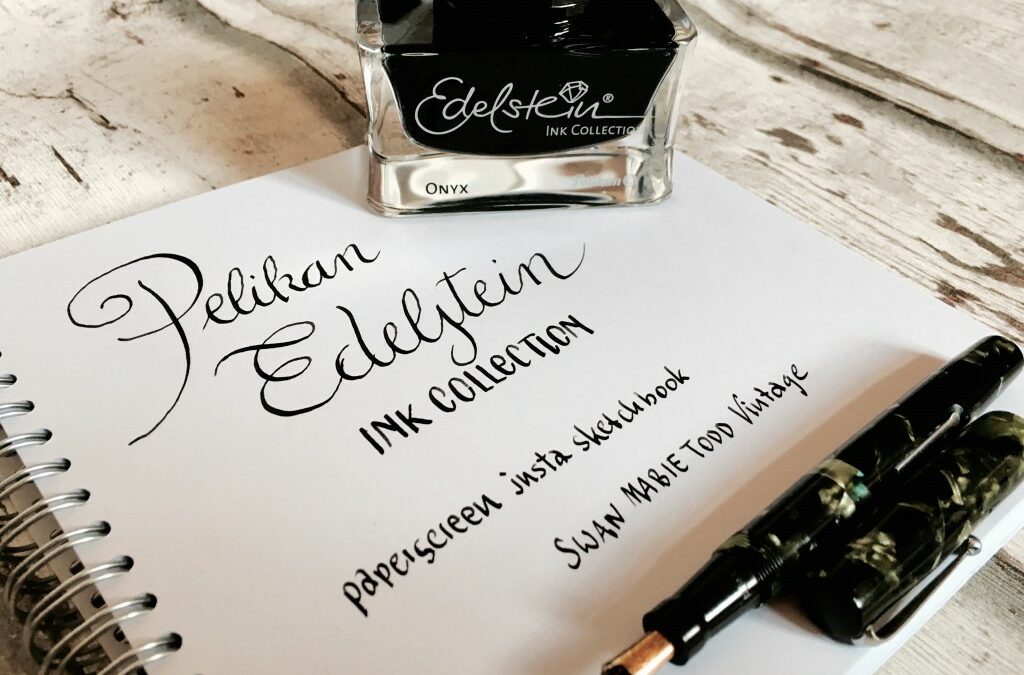 Edelstein®
INK COLLECTION
ONYX
Pelikan
Edelstein
INK COLLECTION
paperscreen insta sketchbook
SWAN MABIE TODD Vintage